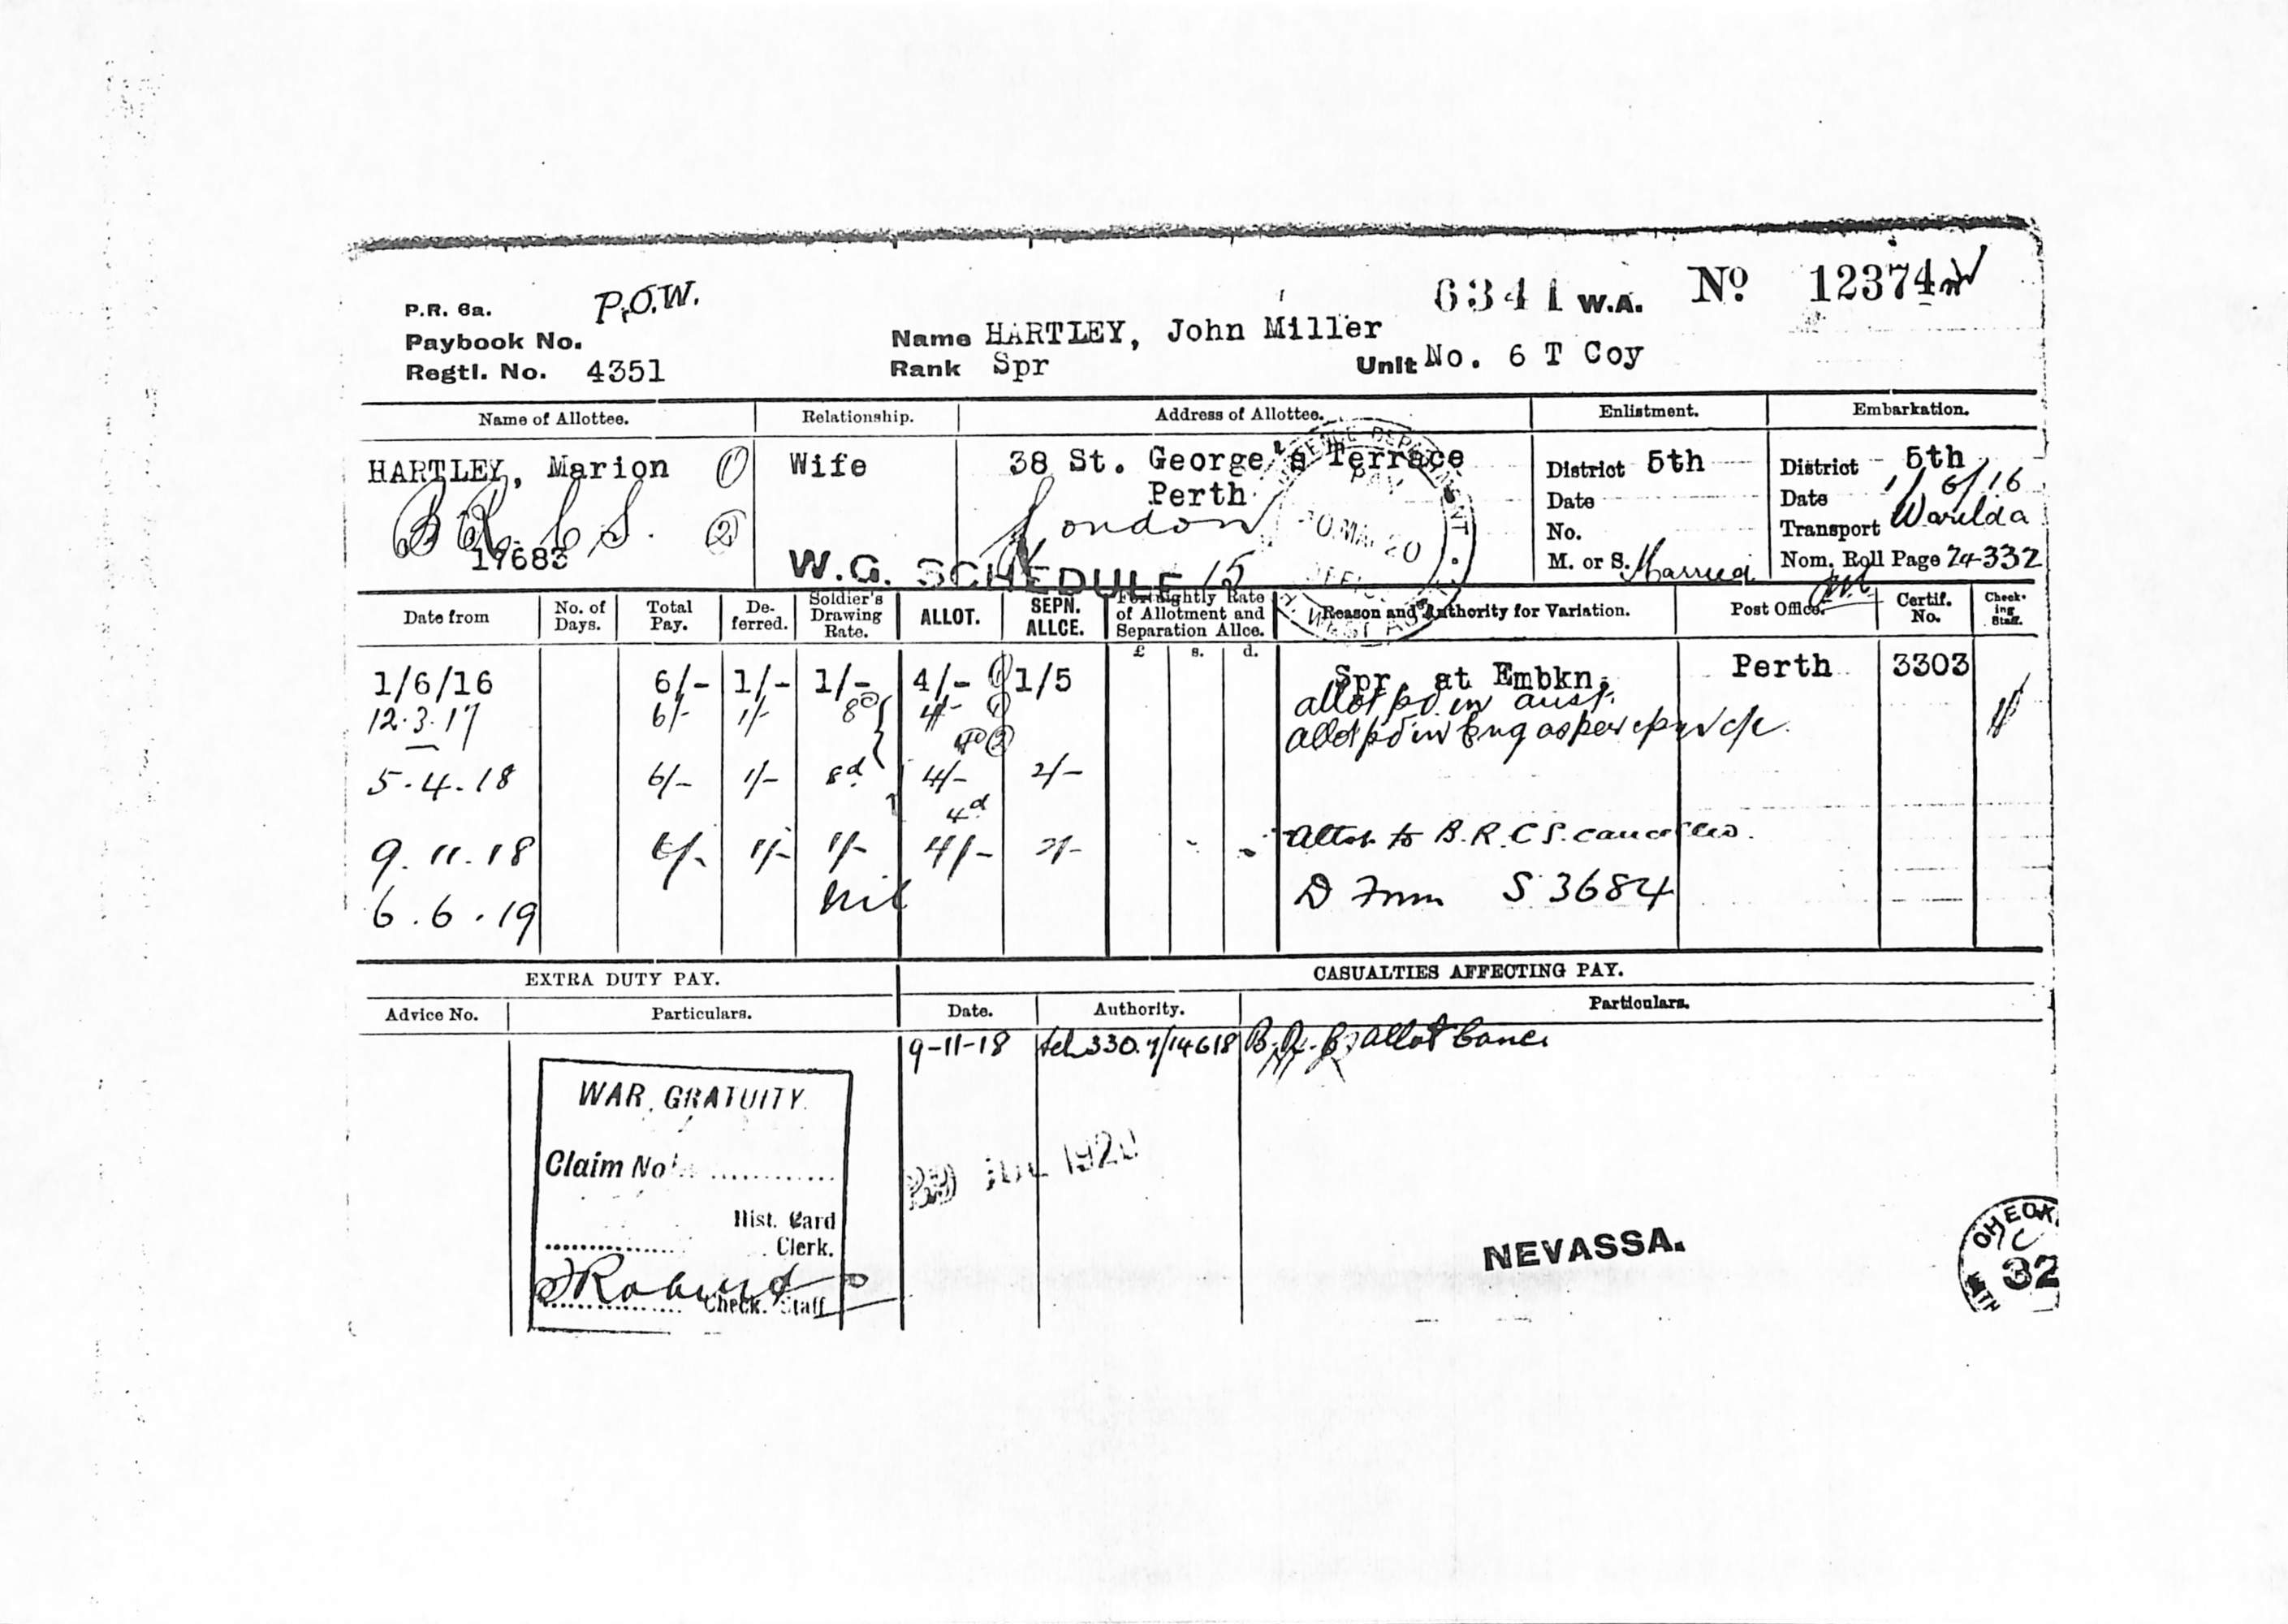 P.R. 6a. P.O.W. 6341 W.A. Nº 12374
Paybook No. Name HARTLEY, John Miller
Regtl. No. 4351 Rank Spr Unit No. 6 T Coy
Name of Allottee. Relationship. Address of Allottee. Enlistment. Embarkation.
HARTLEY, Marion (1) Wife 38 St. George's Terrace District 5th District 5th
Perth Date Date 1/6/16
B R. C S. (2) London No. Transport Warilda
17683 W.G. SCHEDULE 15 M. or S. Married Nom. Roll Page 24-332
DEFENCE DEPARTMENT PAY
Date from No. of Days. Total Pay. De-ferred. Soldier's Drawing Rate. ALLOT. SEPN. ALLCE. Fortnightly Rate of Allotment and Separation Allce. Reason and Authority for Variation. Post Office. Certif. No. Check-ing Staff.
£ s. d.
1/6/16 6/- 1/- 1/- 4/- (1) 1/5 Spr. at Embkn. Perth 3303
allot pd. in aust.
12.3.17 6/- 1/- 8d 4/- (1)
4d (2) allot pd in Eng as per
5.4.18 6/- 1/- 8d 4/- 2/-
4d
9.11.18 6/- 1/- 1/- 4/- 2/- Allot. to B.R.C.S. cancelled.
6.6.19 Nil D S 3684
EXTRA DUTY PAY. CASUALTIES AFFECTING PAY.
Advice No. Particulars. Date. Authority. Particulars.
9-11-18 allot Canc
WAR GRATUITY
Claim No.
JUL 1920
Hist. Card
Clerk.
Check. Staff
NEVASSA.
CHECK
32